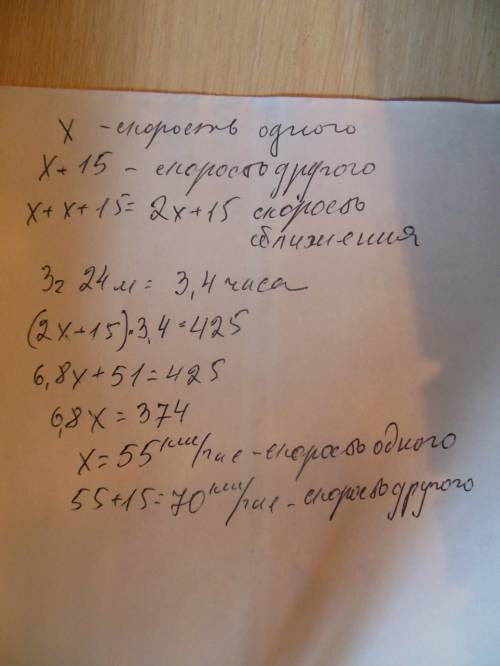 x - скорость одного
x+15 - скорость другого
x+x+15= 2x+15 скорость
сближения
3г 24м = 3,4 часа
(2x+15)·3,4=425
6,8x+51=425
6,8x=374
x=55км/час-скорость одного
55+15=70км/час-скорость другого